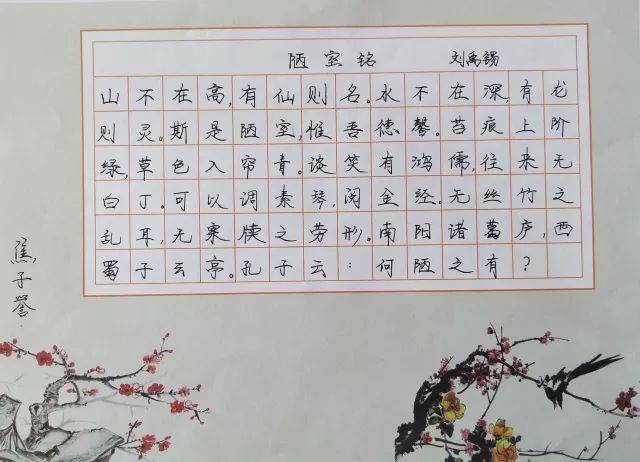 陋室铭 刘禹锡
山不在高,有仙则名。水不在深,有龙
则灵。斯是陋室,惟吾德馨。苔痕上阶
绿,草色入帘青。谈笑有鸿儒,往来无
白丁。可以调素琴,阅金经。无丝竹之
乱耳,无案牍之劳形。南阳诸葛庐,西
蜀子云亭。孔子云:何陋之有?
焦子誉